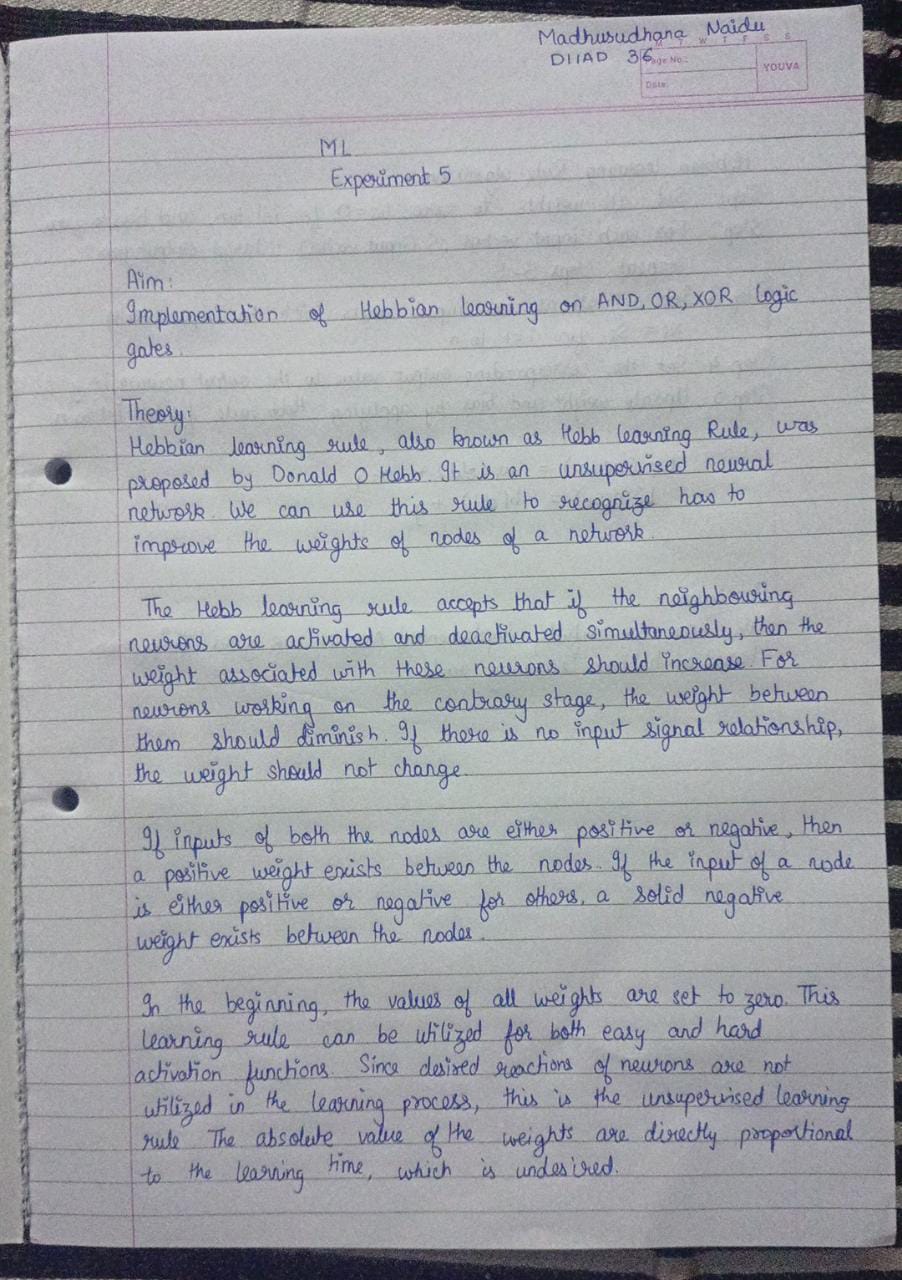 Madhusudhana Naidu
M T W T F S S
D11AD 36
Page No.:
YOUVA
Date:
ML
Experiment 5
Aim:
Implementation of Hebbian learning on AND, OR, XOR logic
gates.
Theory:
Hebbian learning rule, also known as Hebb learning Rule, was
proposed by Donald O Hebb. It is an unsupervised neural
network. We can use this rule to recognize how to
improve the weights of nodes of a network.
The Hebb learning rule accepts that if the neighbouring
neurons are activated and deactivated simultaneously, then the
weight associated with these neurons should increase. For
neurons working on the contrary stage, the weight between
them should diminish. If there is no input signal relationship,
the weight should not change.
If inputs of both the nodes are either positive or negative, then
a positive weight exists between the nodes. If the input of a node
is either positive or negative for others, a solid negative
weight exists between the nodes.
In the beginning, the values of all weights are set to zero. This
learning rule can be utilized for both easy and hard
activation functions. Since desired reactions of neurons are not
utilized in the learning process, this is the unsupervised learning
rule. The absolute value of the weights are directly proportional
to the learning time, which is undesired.